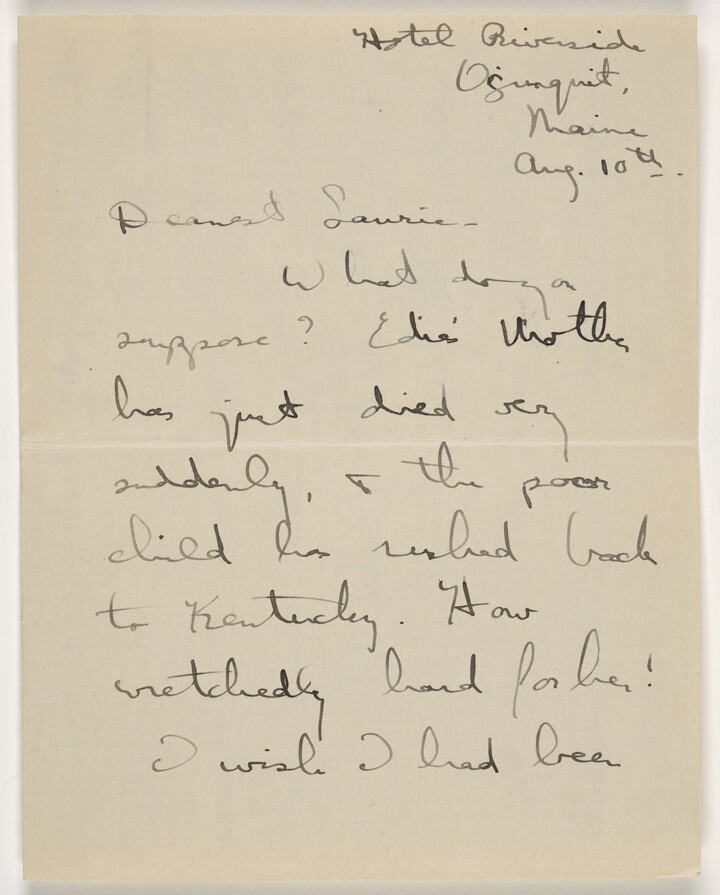 Hotel Riverside
Ogunquit,
Maine
Aug. 10th.
Dearest Laurie –
What do you
suppose? Edie's Mother
has just died very
suddenly, & the poor
child has rushed back
to Kentucky. How
wretchedly hard for her!
I wish I had been